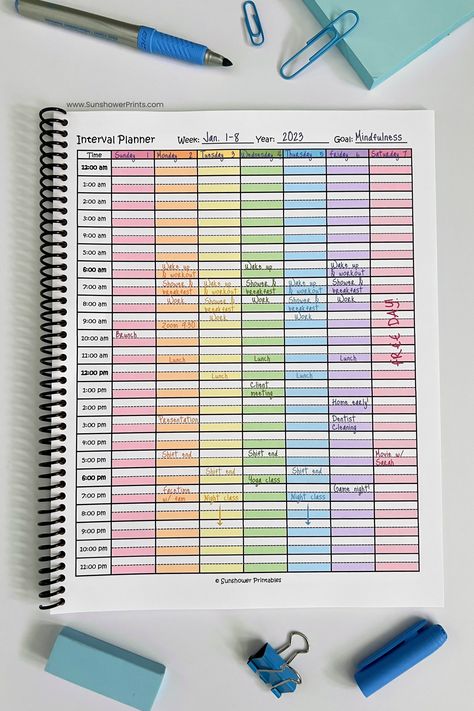 www.SunshowerPrints.com
Interval Planner Week: Jan. 1-8 Year: 2023 Goal: Mindfulness
Time Sunday 1 Monday 2 Tuesday 3 Wednesday 4 Thursday 5 Friday 6 Saturday 7
12:00 am
1:00 am
2:00 am
3:00 am
4:00 am
5:00 am
6:00 am Wake up Wake up Wake up
& workout & workout
7:00 am Shower & Wake up Shower & Wake up Shower &
breakfast & workout breakfast & workout breakfast
8:00 am Work Shower & Work Shower & Work
breakfast breakfast
9:00 am Work Work
Zoom 9:30
FREE DAY!
10:00 am Brunch
11:00 am Lunch Lunch Lunch
12:00 pm Lunch Lunch
1:00 pm Client
meeting
2:00 pm Home early!
3:00 pm Presentation Dentist
Cleaning
4:00 pm
5:00 pm Shift end Shift end Movie w/
Sarah
6:00 pm Shift end Shift end
Yoga class
7:00 pm Facetime Game night!
w/ fam Night class Night class
8:00 pm
9:00 pm
10:00 pm
11:00 pm
© Sunshower Printables